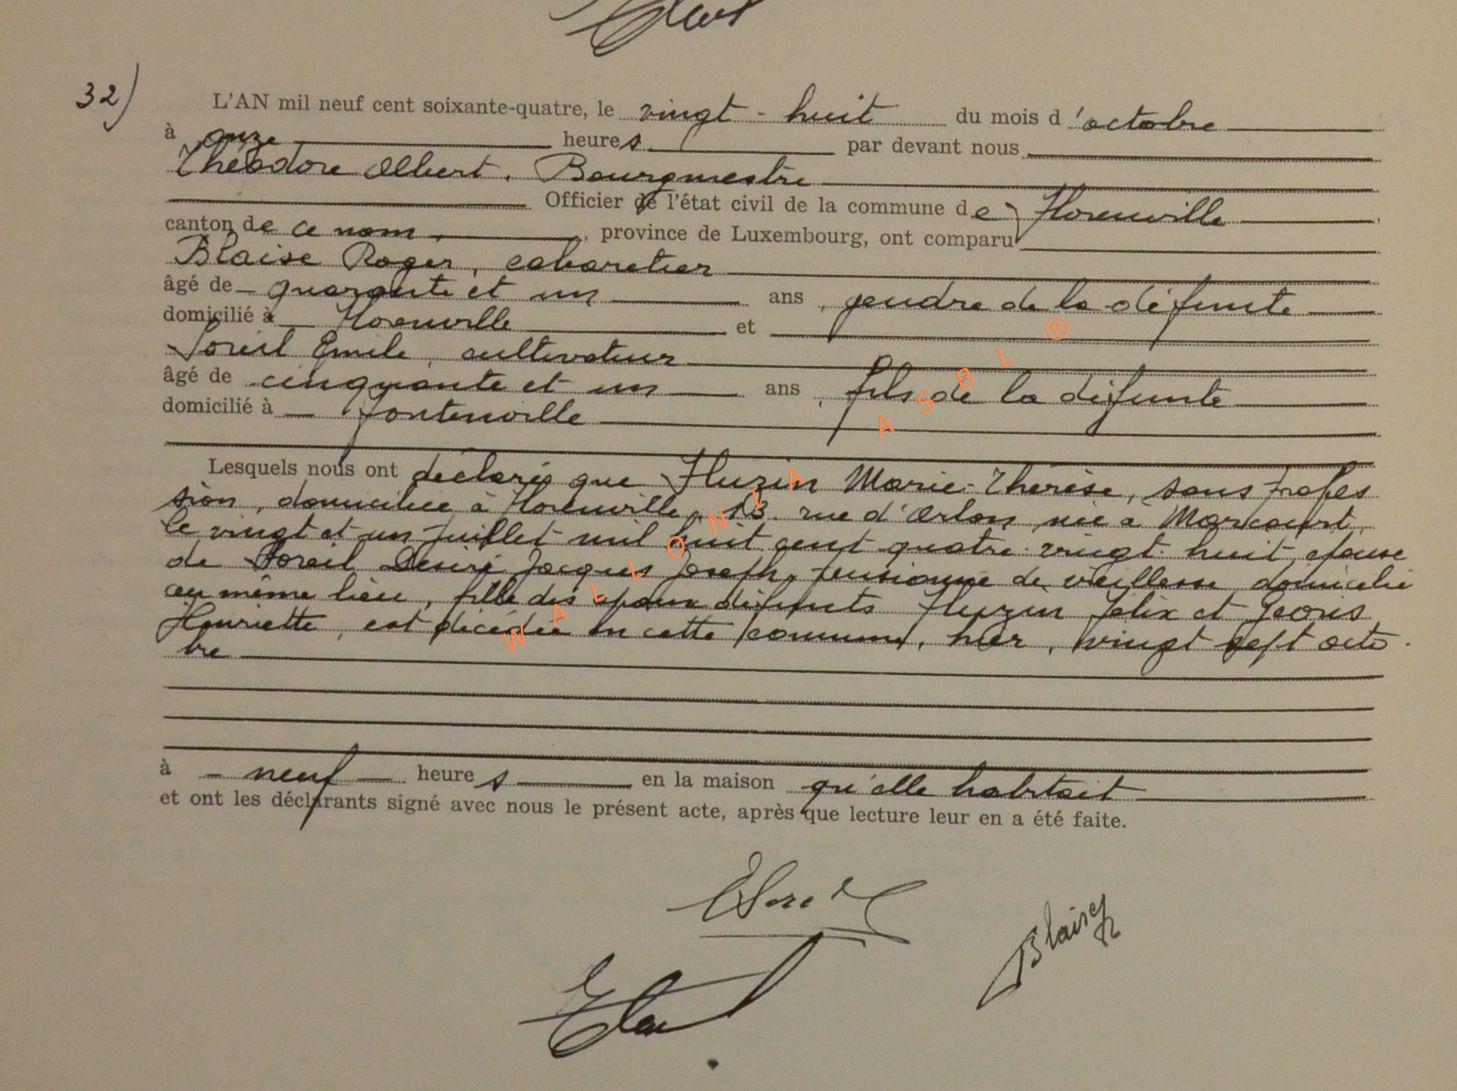 32)
L'AN mil neuf cent soixante-quatre, le vingt-huit du mois d'octobre
à onze heures par devant nous
Théodore Albert, Bourgmestre
Officier de l'état civil de la commune de Florenville
canton de ce nom, province de Luxembourg, ont comparu
Blaise Roger, cabaretier
âgé de quarante et un ans, gendre de la défunte
domicilié à Florenville et
Soreil Emile, cultivateur
âgé de cinquante et un ans, fils de la défunte
domicilié à Fontenoille
Lesquels nous ont déclaré que Fluzin Marie-Thérèse, sans profes
sion, domiciliée à Florenville, 13 rue d'Arlon, née à Marcourt,
le vingt et un juillet mil huit cent quatre-vingt-huit, épouse
de Soreil Désiré Jacques Joseph, pensionné de vieillesse, domicilié
au même lieu, fille des époux défunts Fluzin Félix et Georis
Henriette, est décédée en cette commune, hier, vingt sept octo
bre
à neuf heures en la maison qu'elle habitait
et ont les déclarants signé avec nous le présent acte, après que lecture leur en a été faite.
ESoreil
Blaise R
WALLONIA ASBL ®